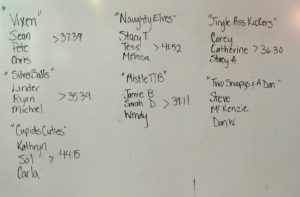 "Vixen"
Sean
Pete > 37:39
Chris
"SilverBalls"
Linder
Ryan > 35:39
Michael
"Cupids Cuties"
Kathryn
Sol > 44:15
Carla
"Naughty Elves"
Stacy T
Tess > 41:52
Melissa
"MistleTTB"
Jamie B
Sarah D > 39:11
Wendy
"Jingle Ass Kickers"
Carey
Catherine > 36:30
Stacy A
"Two Snapys & A Dan"
Steve
McKenzie
Dan W.